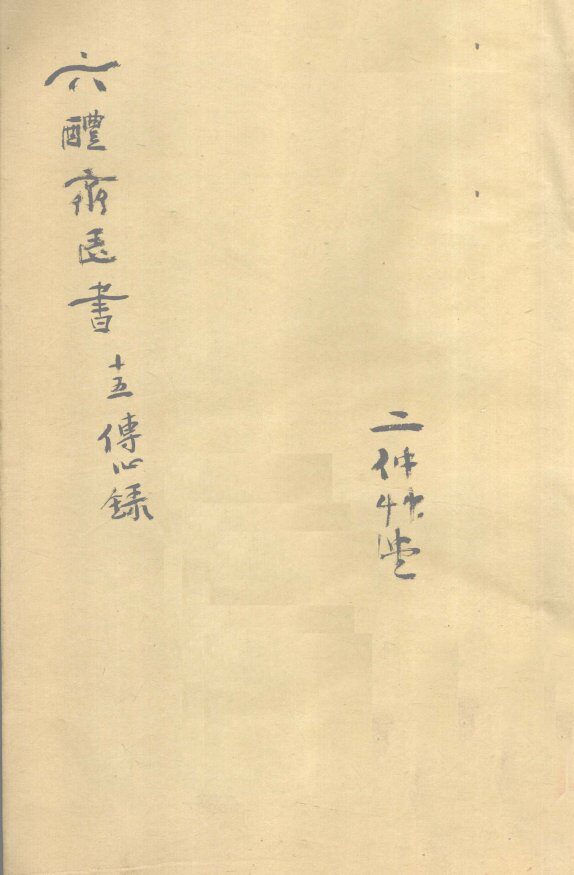 二仲艸堂
六醴齋醫書 十五 傳心録